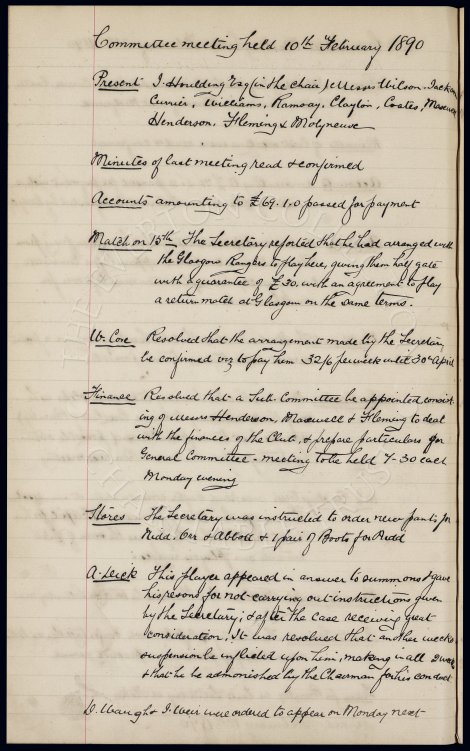 Committee meeting held 10th February 1890
Present J. Houlding Esq (in the chair) Messrs Wilson, Jackson
Currier, Williams, Ramsay, Clayton, Coates, Maxwell
Henderson, Fleming & Molyneux
Minutes of last meeting read & confirmed
Accounts amounting to £69.1.0 passed for payment
Match on 15th, The Secretary reported that he had arranged with
the Glasgow Rangers to play here, giving them half gate
with a guarantee of £30, with an agreement to play
a return match at Glasgow on the same terms.
W. Cox Resolved that the arrangement made by the Secretary
be confirmed viz to pay him 32/6 per week until 30th April
Finance Resolved that a Sub-Committee be appointed, consist-
ing of Messrs Henderson, Maxwell & Fleming to deal
with the finances of the Club, & prepare particulars for
General Committee - meeting to be held 7-30 each
Monday evening
Stores The Secretary was instructed to order new pants for
Kidd, Orr & Abbott & 1 pair of Boots for
A. Leick This player appeared in answer to summons & gave
his resons for not carrying out instructions given
by the Secretary; & after the case receiving great
consideration, It was resolved that another weeks
suspension be inflicted upon him, making in all 2 weeks
& that he be admonished by the Chairman for his conduct
D. Waugh & J. Weir were ordered to appear on Monday next